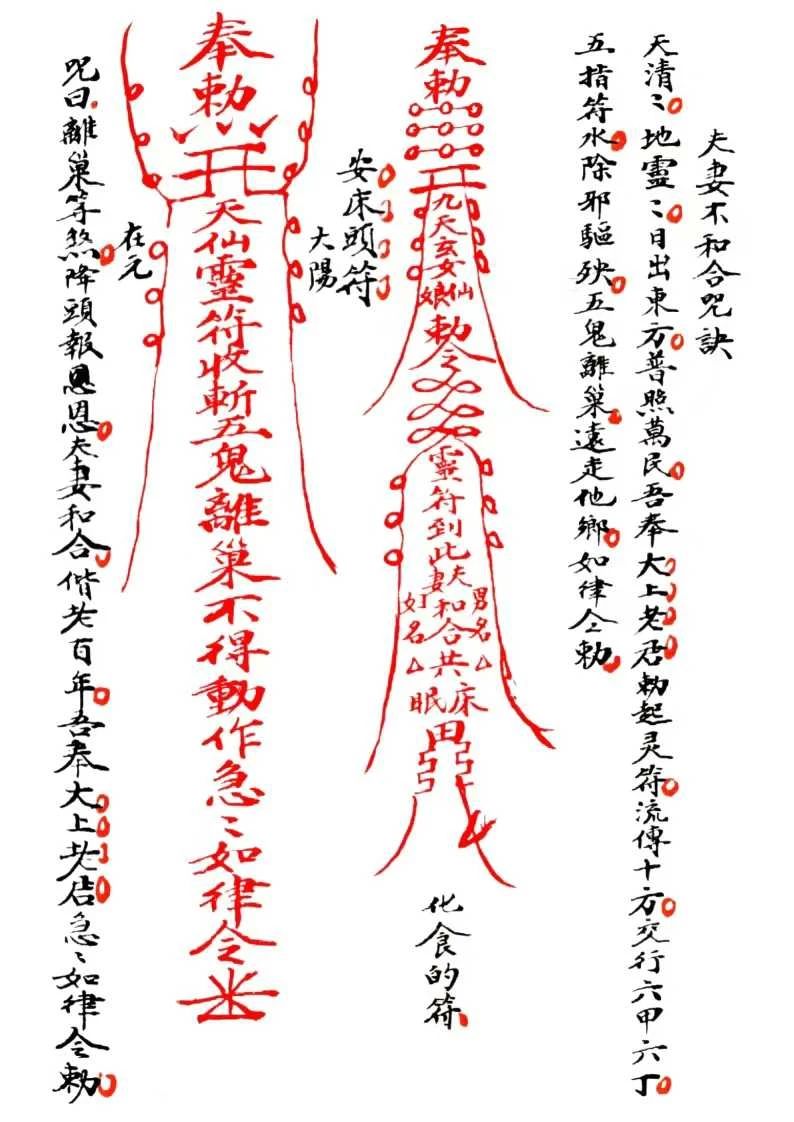 夫妻不和合咒訣
天清〻地靈〻日出東方普照萬民吾奉大上老君勅起灵符流傳十方交行六甲六丁
五指符水除邪驅殃五鬼離巢遠走他鄉如律令勅
奉勅
九天玄女仙娘勅令
靈符到此夫妻和合共床眠
男名△
女名△
化食的符
安床頭符
大陽
奉勅
天仙靈符收斬五鬼離巢不得動作急〻如律令
在元
咒曰離巢等煞降頭報恩恩夫妻和合偕老百年吾奉大上老君急〻如律令勅